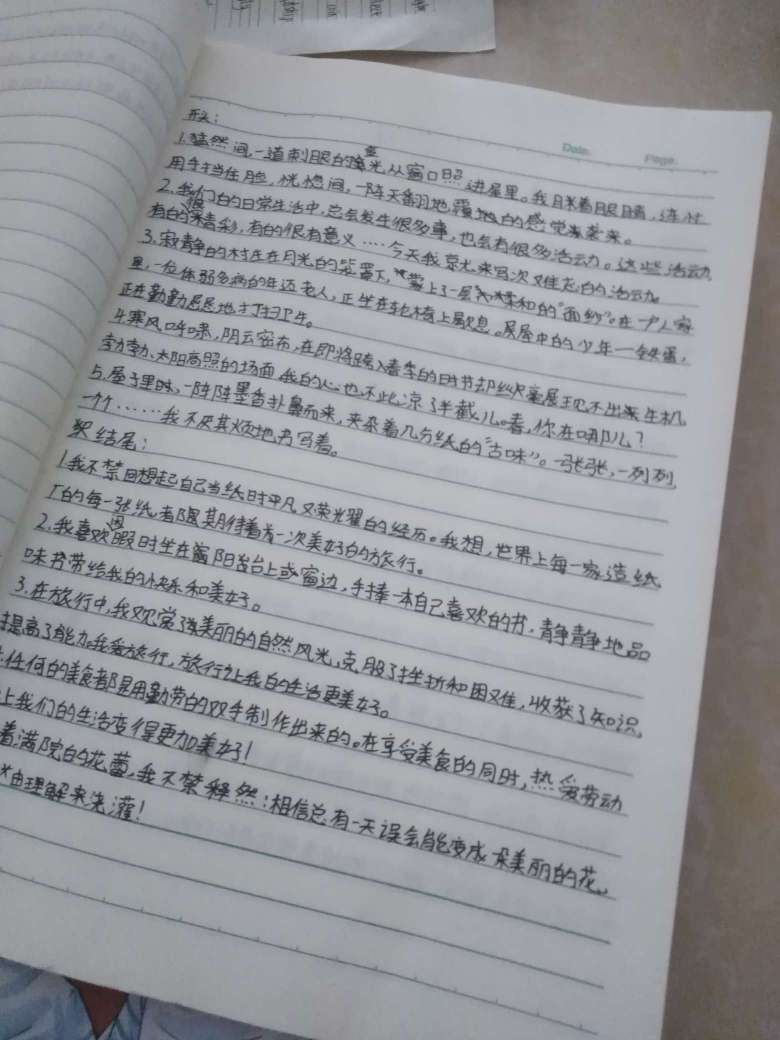 开头:
Date. Page.
1.猛然间,一道刺眼的金光从窗口照进屋里。我眯着眼睛,连忙
用手挡住脸,恍惚间,一阵天翻地覆的感觉袭来。
2.我们的日常生活中,总会发生很多事,也会有很多活动。这些活动
有的很精彩,有的很有意义……今天我就来写次难忘的活动。
3.寂静的村庄在月光的笼罩下,蒙上了一层柔和的“面纱”。在一户人家
里,一位体弱多病的年迈老人,正坐在轮椅上歇息。屋中的少年一铁蛋,
正在勤勤恳恳地打扫卫生。
4.寒风呼啸,阴云密布,在即将踏入春季的时节却丝毫展现不出来生机
勃勃、太阳高照的场面,我的心也不由凉了半截儿。春,你在哪儿?
5.屋子里时,一阵阵墨香扑鼻而来,夹杂着几分纸的“古味”。一张张,一列列,
一个个……我不厌其烦地书写着。
结尾:
1.我不禁回想起自己当纸时平凡又荣光耀的经历。我想,世界上每一家造纸
厂的每一张纸,都愿期待着有一次美好的旅行。
2.我喜欢闲暇时坐在阳台上或窗边,手捧一本自己喜欢的书,静静地品
味书带给我的快乐和美好。
3.在旅行中,我欣赏了美丽的自然风光,克服了挫折和困难,收获了知识,
提高了能力。我爱旅行,旅行让我的生活更美好。
任何的美食都是用勤劳的双手制作出来的。在享受美食的同时,热爱劳动
上我们的生活变得更加美好!
着满院的花蕾,我不禁释然:相信总有一天误会能变成一朵美丽的花。
由理解来浇灌!